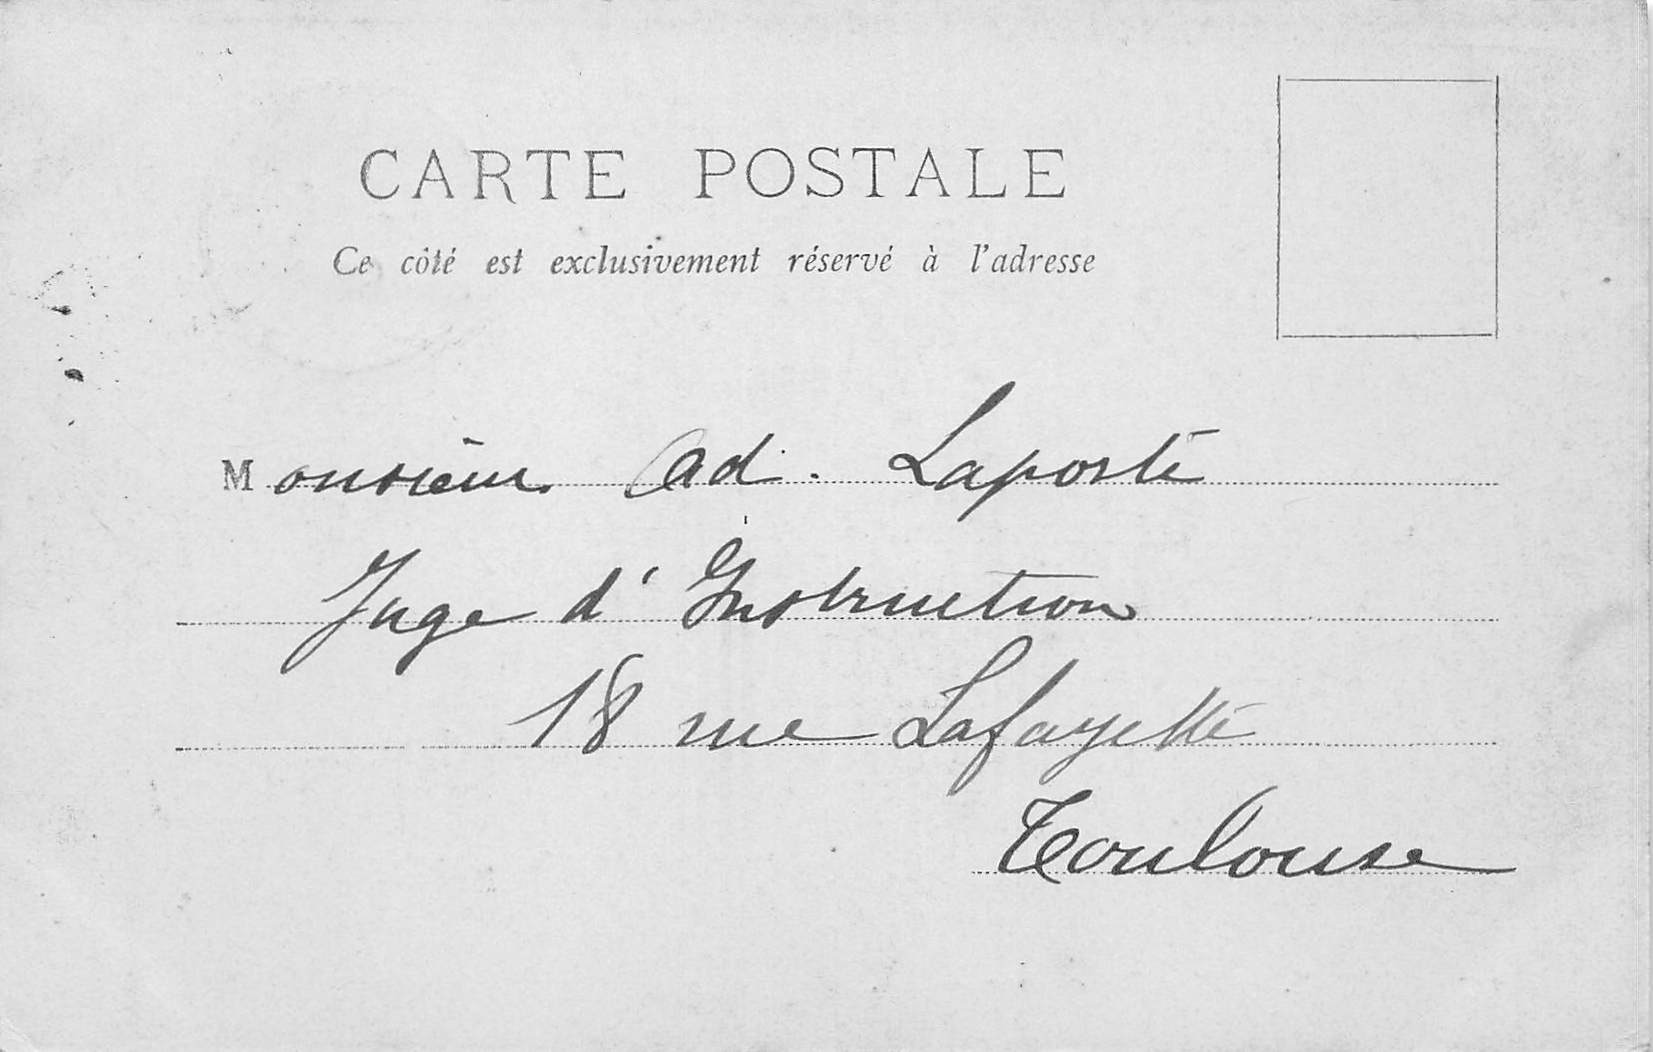 CARTE POSTALE
Ce côté est exclusivement réservé à l'adresse
Monsieur Ad. Laporte
Juge d'Instruction
18 rue Lafayette
Toulouse